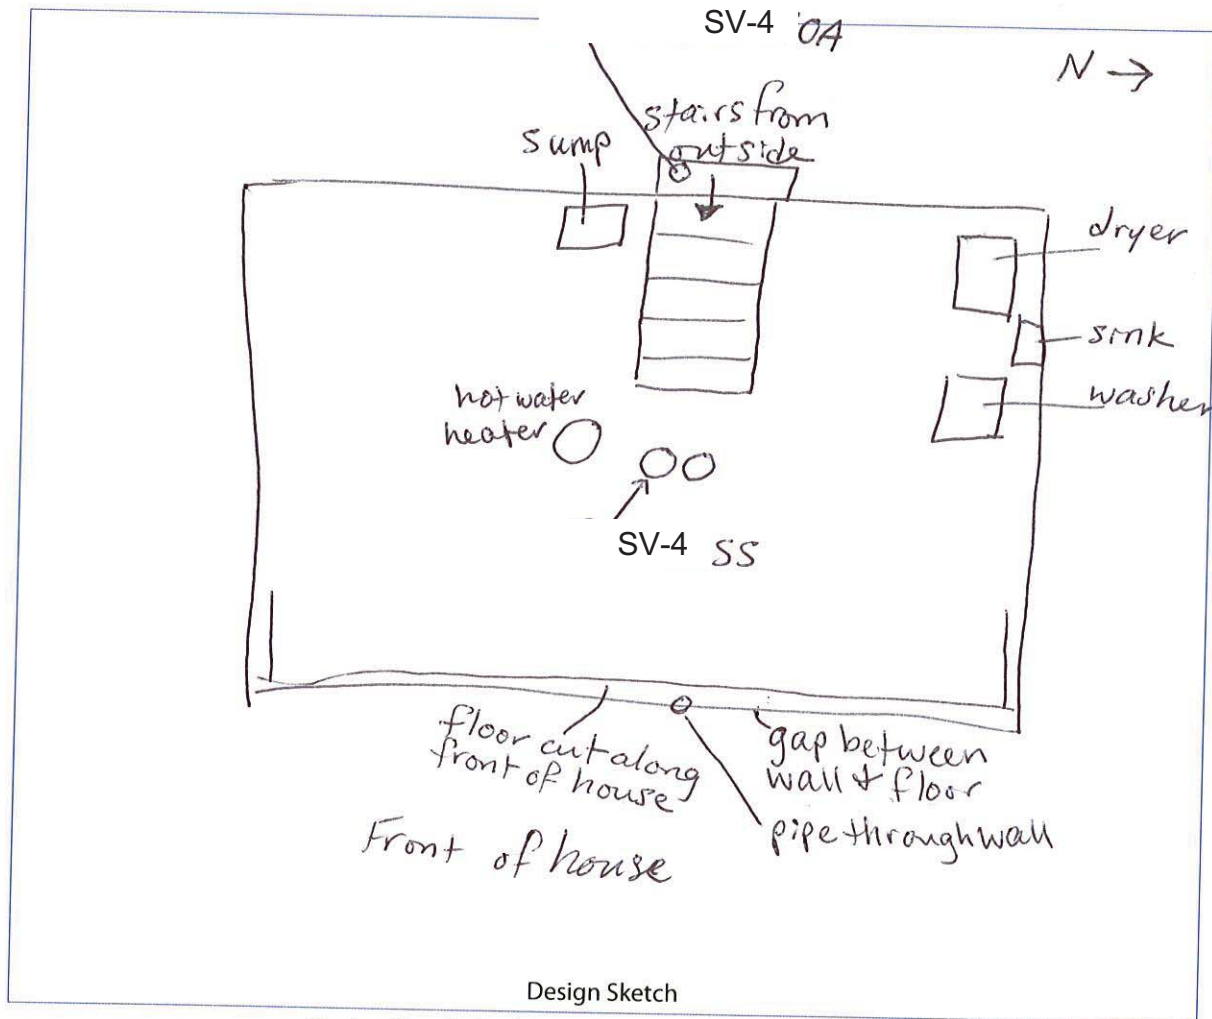 SV-4 OA
N →
stairs from
outside
sump
dryer
sink
washer
hot water
heater
SV-4 SS
floor cut along
front of house
gap between
wall & floor
pipe through wall
Front of house
Design Sketch